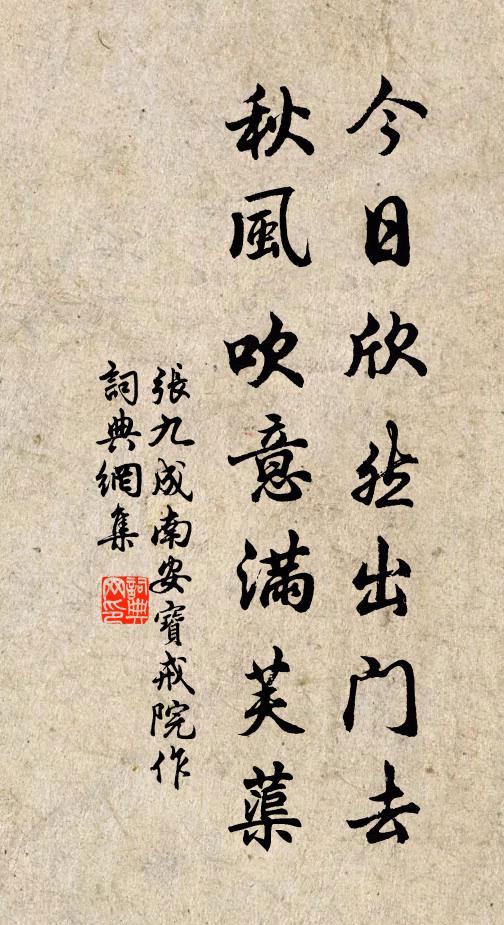 今日欣然出門去
秋風吹意滿芙蕖
張九成南安寶戒院作
詞典網集
詞典
网印